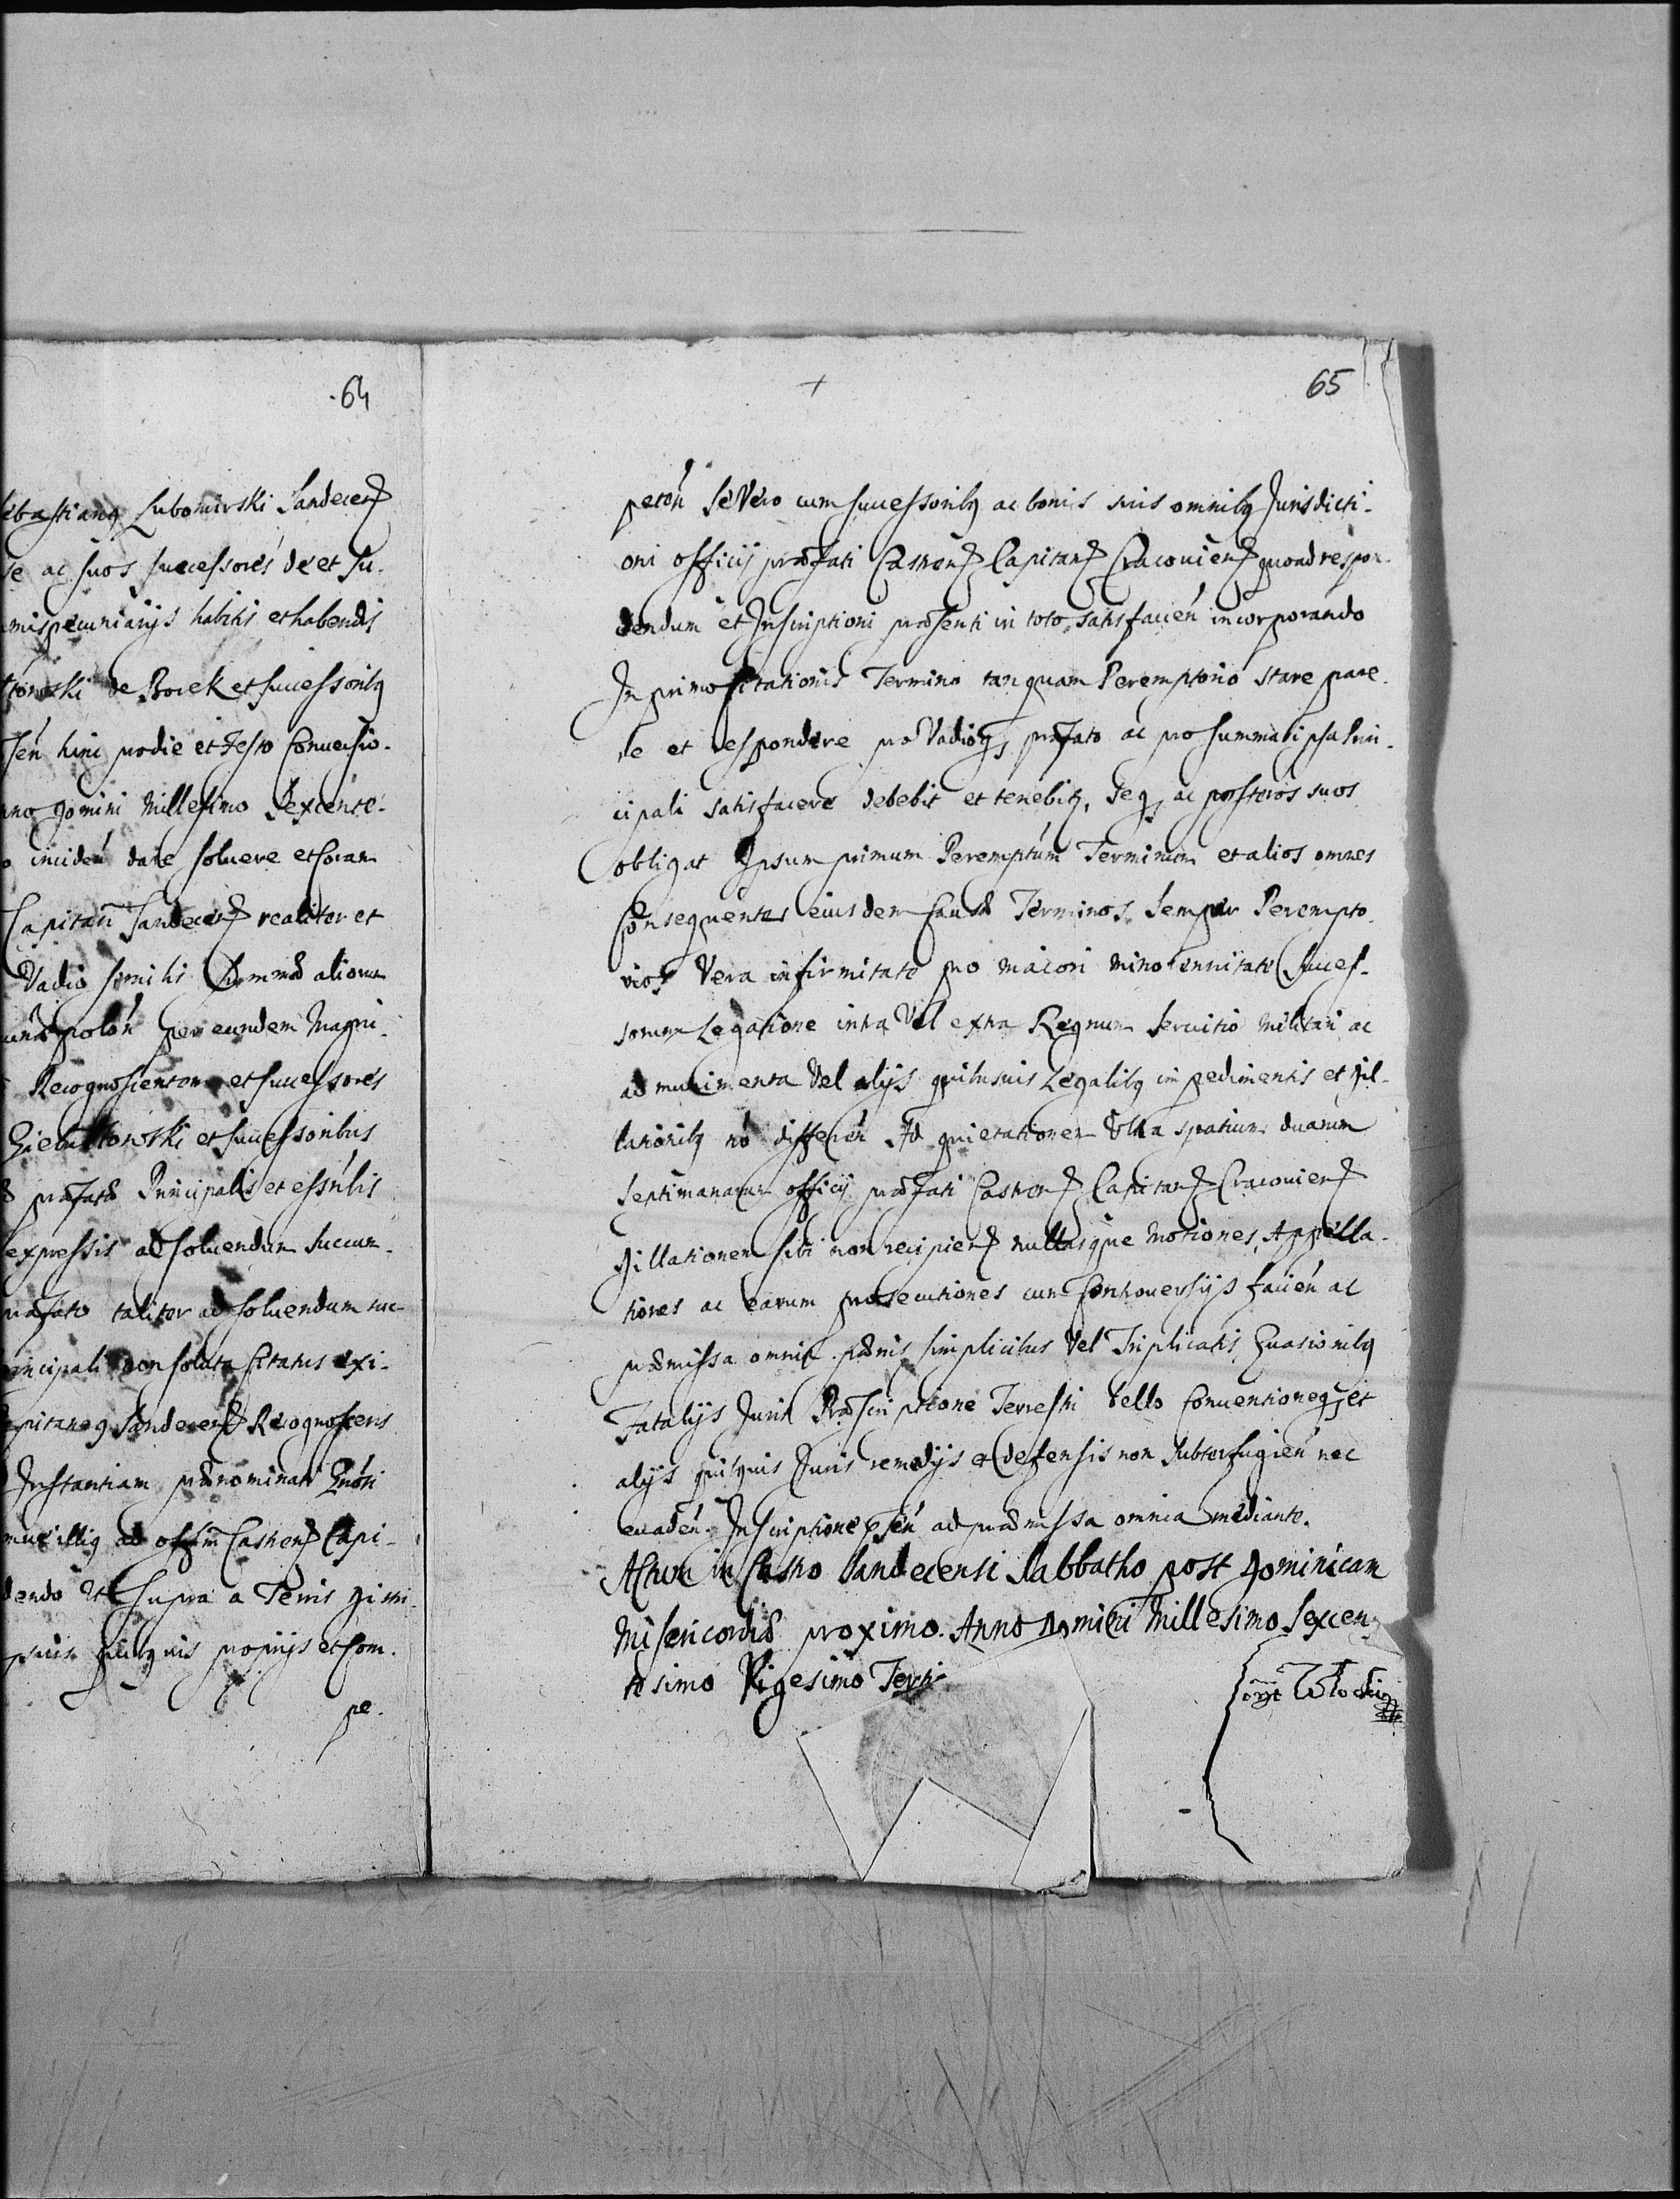 64
Sebastianq Lubomirski Sandecen
se ac suos successores de et su-
mis pecuniarijs habitis et habendis
de Borek et successoribq
hinc prodie et festo Conversio-
nno Domini Millesimo Sexcente-
o inciden dare soluere et Coram
Capitan Sandecen realiter et
Vadio simili summæ aliorum
polon per eundem Magni-
Recognoscentem et successores
Giebultowski et successoribus
præfatæ Principalis et
expressis ad soluendum succum-
præfato taliter ad soluendum suc-
incipali non soluta Citatus exi-
apitaneq Sandecen Recognoscens
Instantiam prænominati
illiq ad offm Castren Capi-
dendo Vt supra a Terris
suis quibq uis proprijs et Com-
pe-
65
peten se Vero cum successoribq ac bonis suis omnibq Jurisdicti-
oni officij præfati Castren Capitan Cracouien quoad respon-
dendum et Inscriptioni præsenti in toto satisfacien incorporando
In primo Citationis Termino tanquam Peremptorio stare pare-
re et respondere pro Vadioq præfato ac pro summa ipsa Prin-
cipali satisfacere debebit et tenebitq, seq ac posteros suos
obligat Ipsum primum Peremptum Terminum et alios omnes
Consequentes eiusdem Causæ Terminos semper Perempto-
rios Vera infirmitate pro maiori minorennitate Succes-
sorum Legatione intra Vel extra Regnum seruitio militari ac
ad munimenta Vel alijs quibusuis Legalibq impedimentis et dil-
lationibq nõ differen Ad quietationem Vltra spatium duarum
septimanarum officij præfati Castren Capitan Cracouien
dillationem sibi non recipien nullasque motiones, Appella-
tiones ac earum prosecutiones cum Controuersijs facien ac
præmissa omnia pænis simplicibus Vel Triplicatis Euasionibq
Fatalijs Juris Præscriptione Terrestri bello Conuentioneq et
alijs quibquis Juris remedijs et defensis non subterfugien nec
euaden. Inscriptione ad præmissa omnia mediante.
Actum in Castro Sandecensi Sabbatho post Dominicam
Misericordiæ proximo. Anno Domini Millesimo Sexcen-
tesimo Vigesimo Tertio